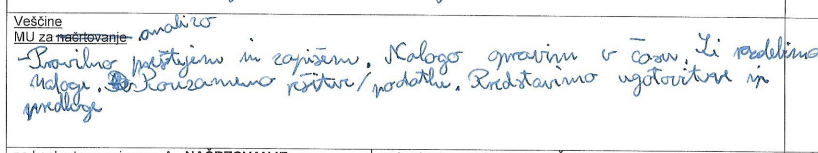 Veščine
MU za načrtovanje analizo
- Pravilno preštejemo in zapišemo. Nalogo opravim v času. Si razdelimo
naloge. Povzamemo rešitve/podatke. Predstavimo ugotovitve in
predloge
NAČRTOVANJE